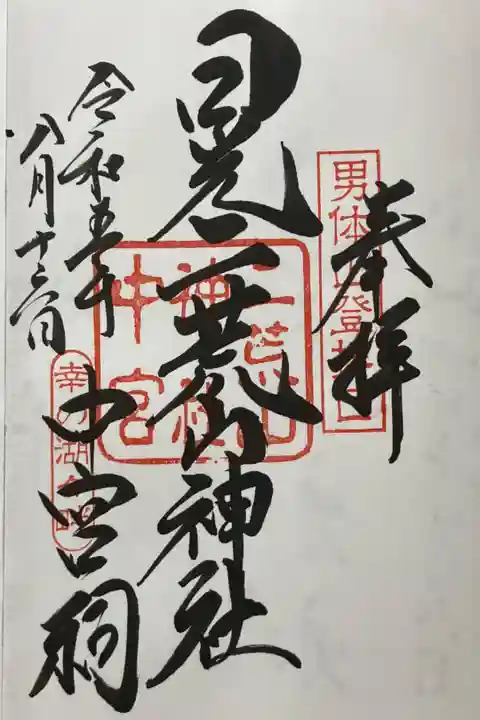 奉拝
男体山登拝口
日光二荒山神社
二荒山
神社
中宮
中宮祠
幸の湖
令和五年
八月十 日